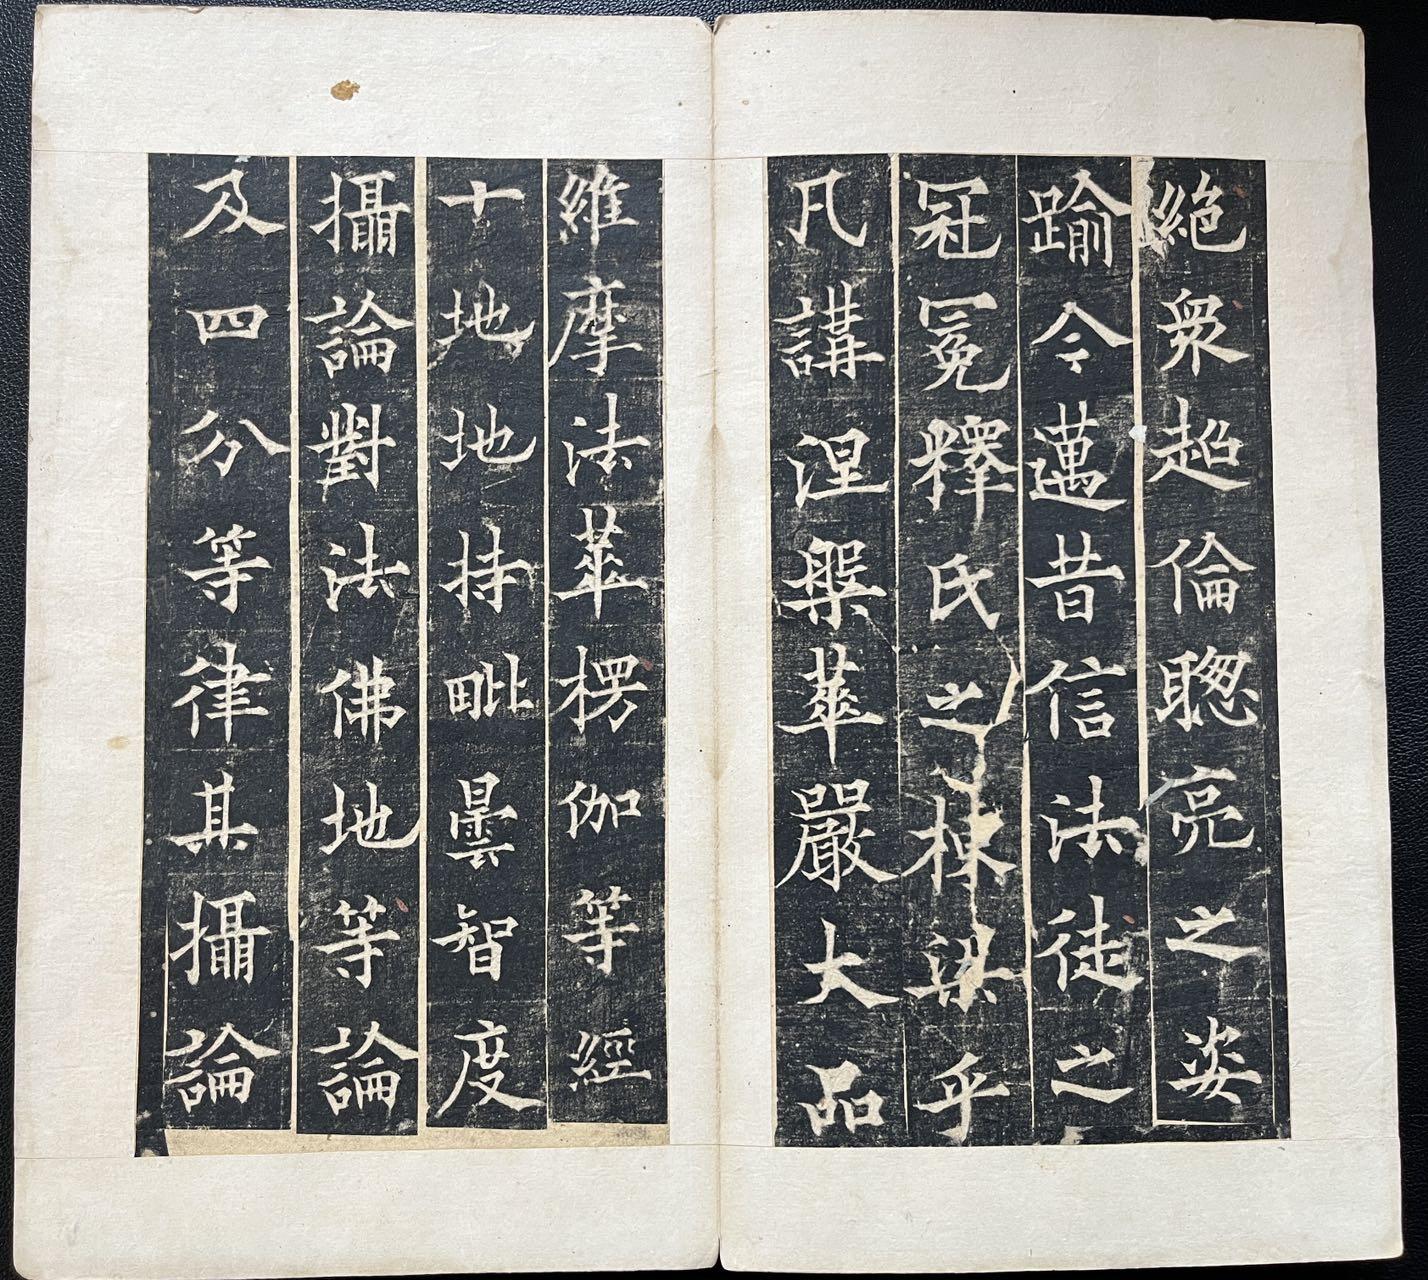 絶衆超倫聦亮之姿
踰今邁昔信法徒之
冠冕釋氏之棟梁乎
凡講涅槃華嚴大品
維摩法華楞伽等經
十地地持毗曇智度
攝論對法佛地等論
及四分等律其攝論